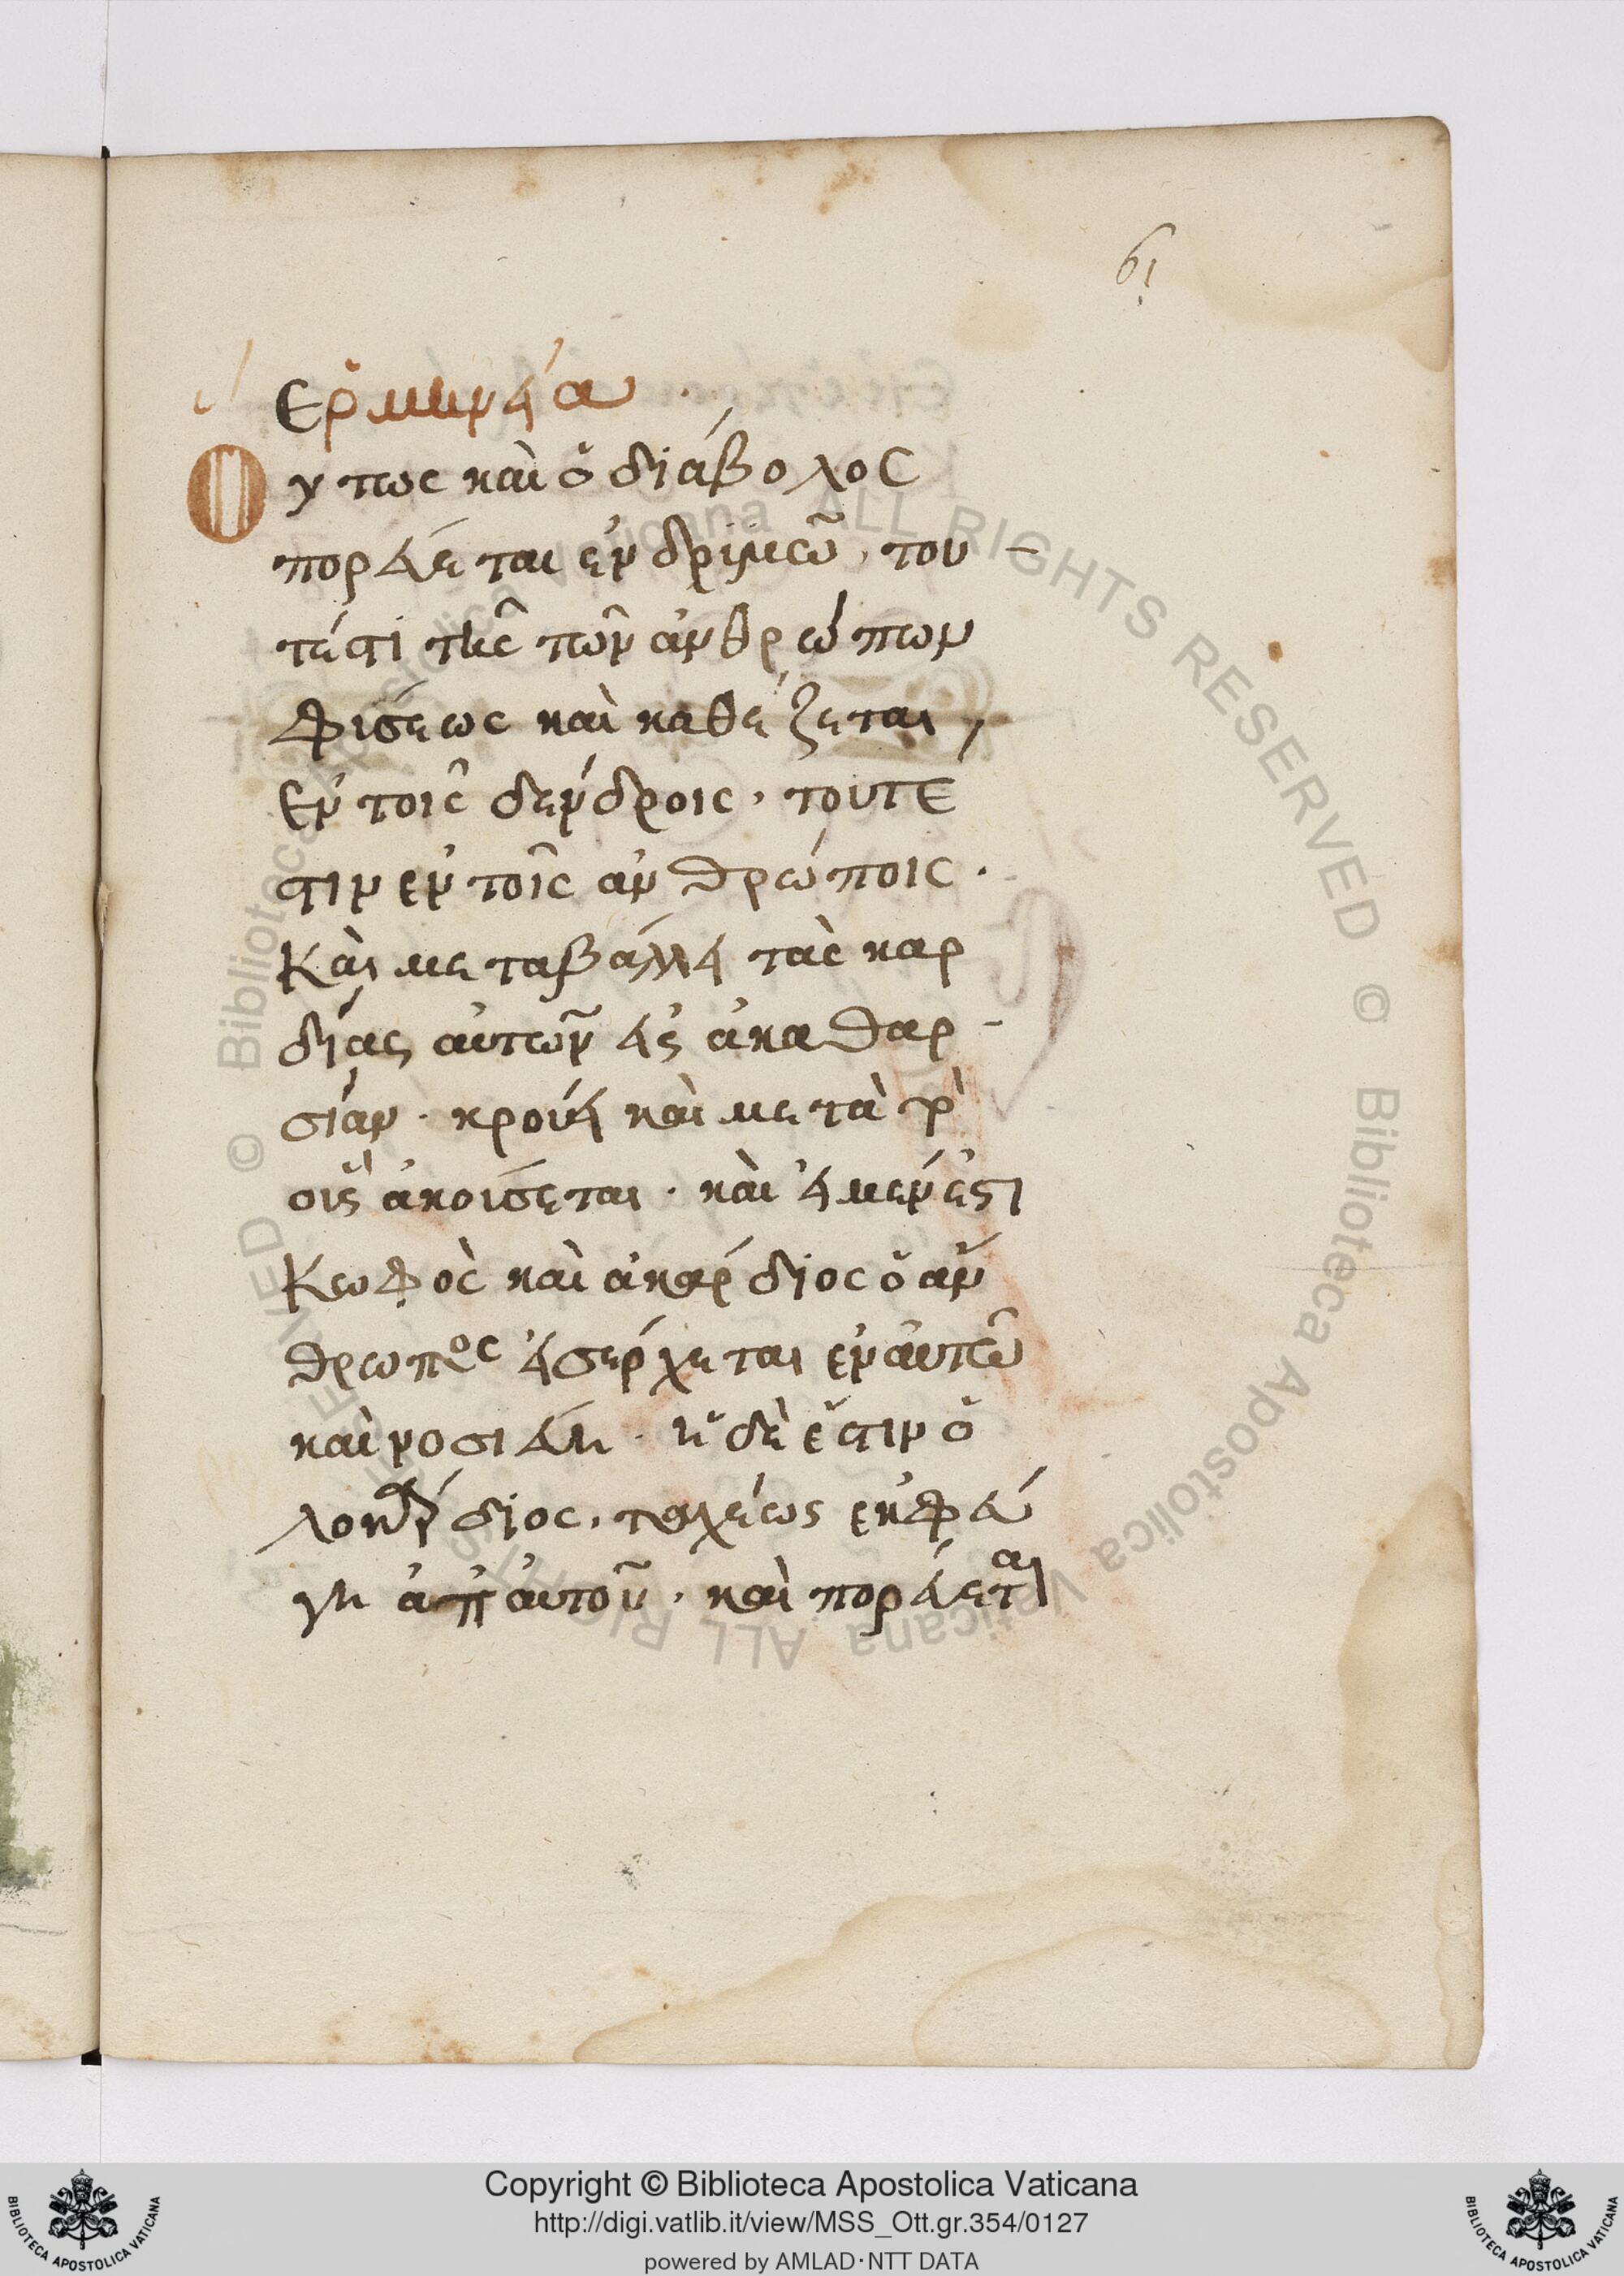 61
Ερμηνεία
Ούτως καὶ ὁ διάβολος
πορεύεται ἐν δρυμῶ, του
τέστι τῆς τῶν ἀνθρώπων
φύσεως καὶ καθέζεται,
ἐν τοῖς δένδροις, τουτέ
στιν ἐν τοῖς ἀνθρώποις.
Καὶ μεταβάλλει τὰς καρ
δίας αὐτῶν εἰς ἀκαθαρ
σίαν. κρούει καὶ μετὰ
οὖς ἀκούσεται. καὶ εἰ μέν ἐστι
Κωφὸς καὶ ἀκάρδιος ὁ ἄν
θρωπος εἰσέρχεται ἐν αὐτῶ
καὶ νοσιεύει. εἰ δὲ ἔστιν ὁ
ταχέως ἐκφεύ
γει ἀπ αὐτοῦ. καὶ πορεύεται
Copyright © Biblioteca Apostolica Vaticana
http://digi.vatlib.it/view/MSS_Ott.gr.354/0127
powered by AMLAD·NTT DATA
BIBLIOTECA APOSTOLICA VATICANA
BIBLIOTECA APOSTOLICA VATICANA
© Biblioteca Apostolica Vaticana ALL RIGHTS RESERVED © Biblioteca Apostolica Vaticana ALL RIGHTS RESERVED